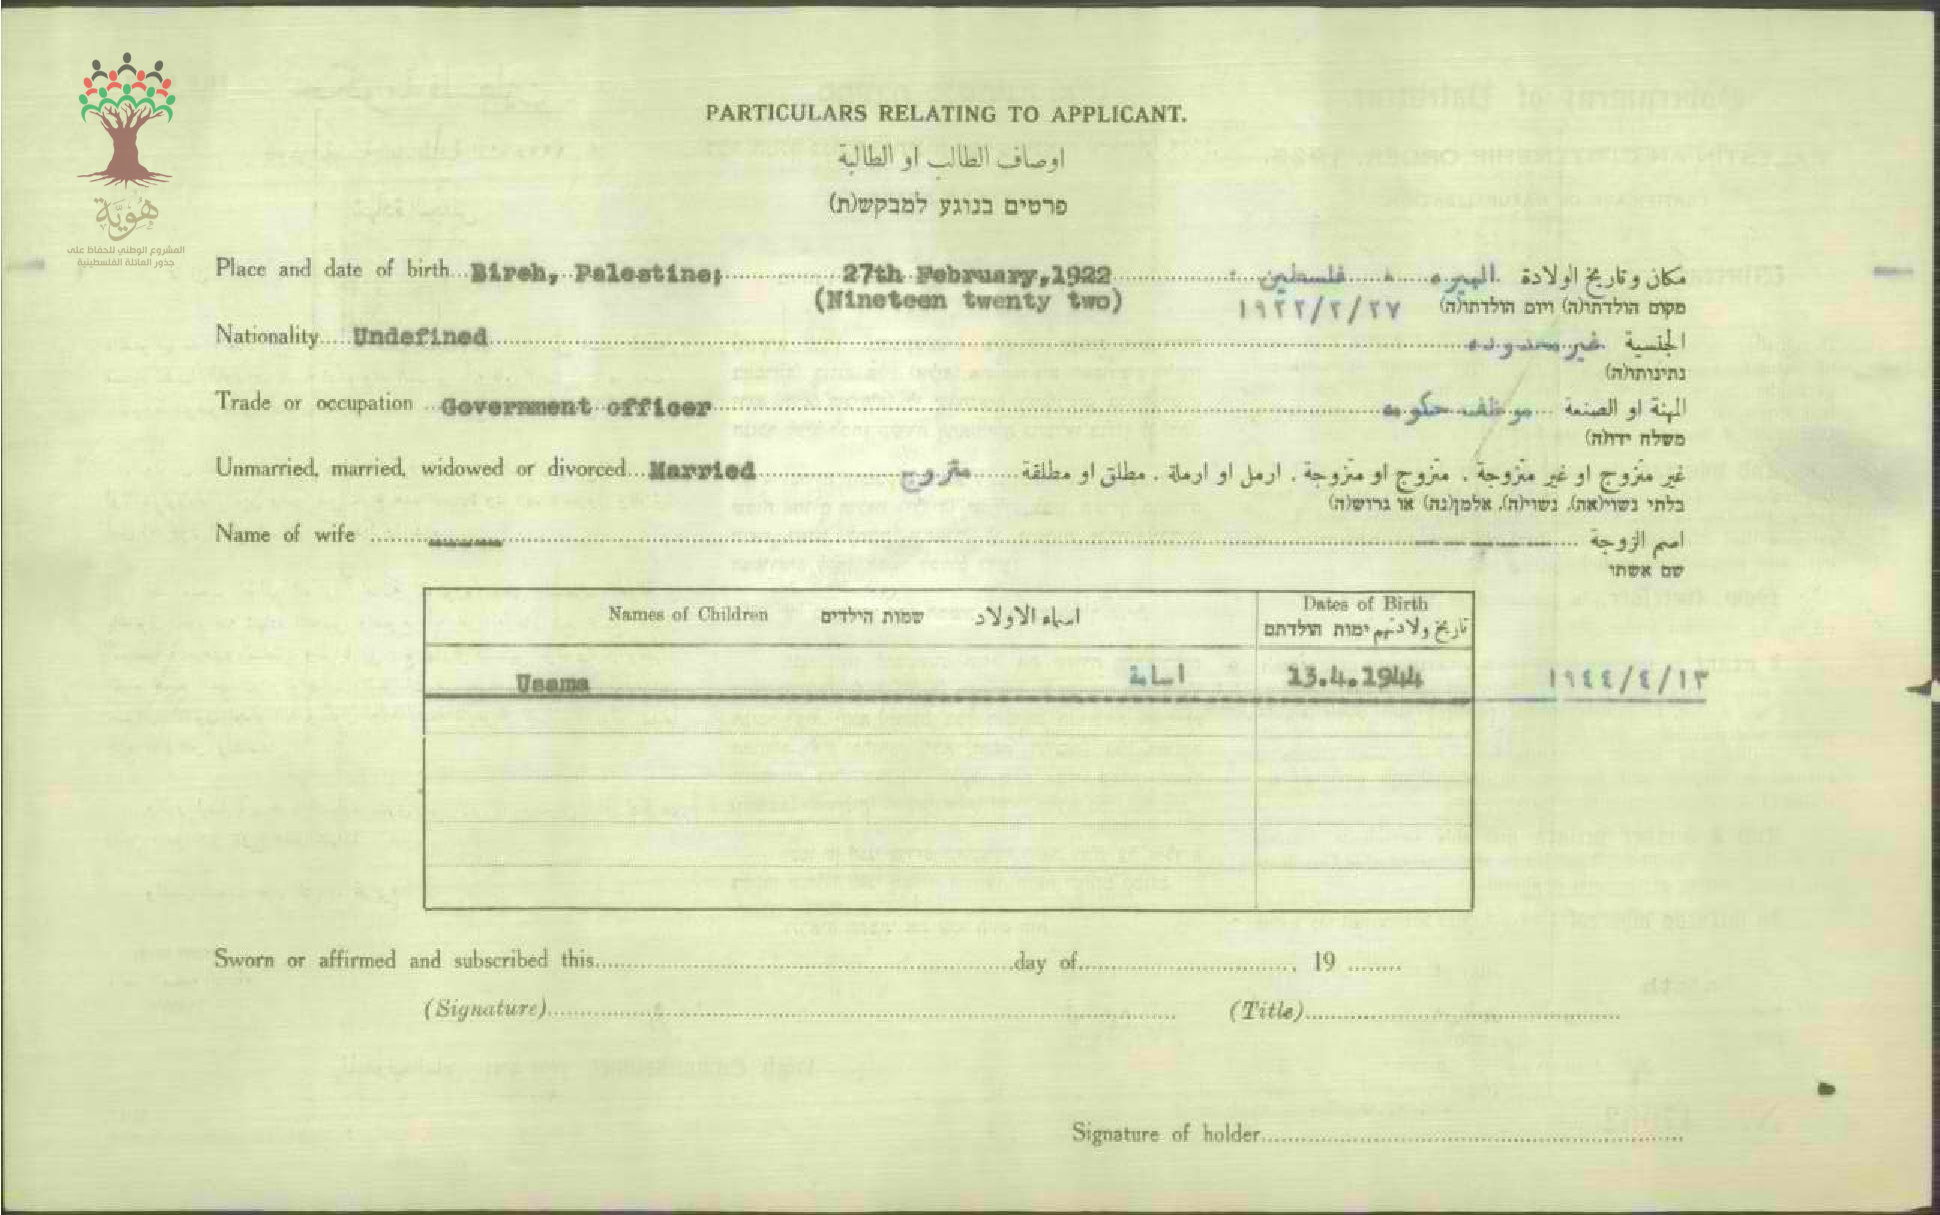 هُويّة
المشروع الوطني للحفاظ على
جذور العائلة الفلسطينية
PARTICULARS RELATING TO APPLICANT.
اوصاف الطالب او الطالبة
פרטים בנוגע למבקש(ת)
Place and date of birth Bireh, Palestine; 27th February,1922 البيره ، فلسطين ؛ مكان وتاريخ الولادة
(Nineteen twenty two) ١٩٢٢/٢/٢٧ מקום הולדתו(ה) ויום הולדתו(ה)
Nationality Undefined غير محدوده الجنسية
נתינותו(ה)
Trade or occupation Government officer موظف حكومه المهنة او الصنعة
משלח ידו(ה)
Unmarried, married, widowed or divorced Married متزوج غير متزوج او غير متزوجة . متزوج او متزوجة . ارمل او ارملة . مطلق او مطلقة
בלתי נשוי(אה), נשוי(ה), אלמן(נה) או גרוש(ה)
Name of wife ------ اسم الزوجة
שם אשתו
Names of Children שמות הילדים اسماء الاولاد Dates of Birth
تاريخ ولادتهم ימות הולדתם
Usama اسامة 13.4.1944 ١٩٤٤/٤/١٣
Sworn or affirmed and subscribed this day of 19
(Signature) (Title)
Signature of holder